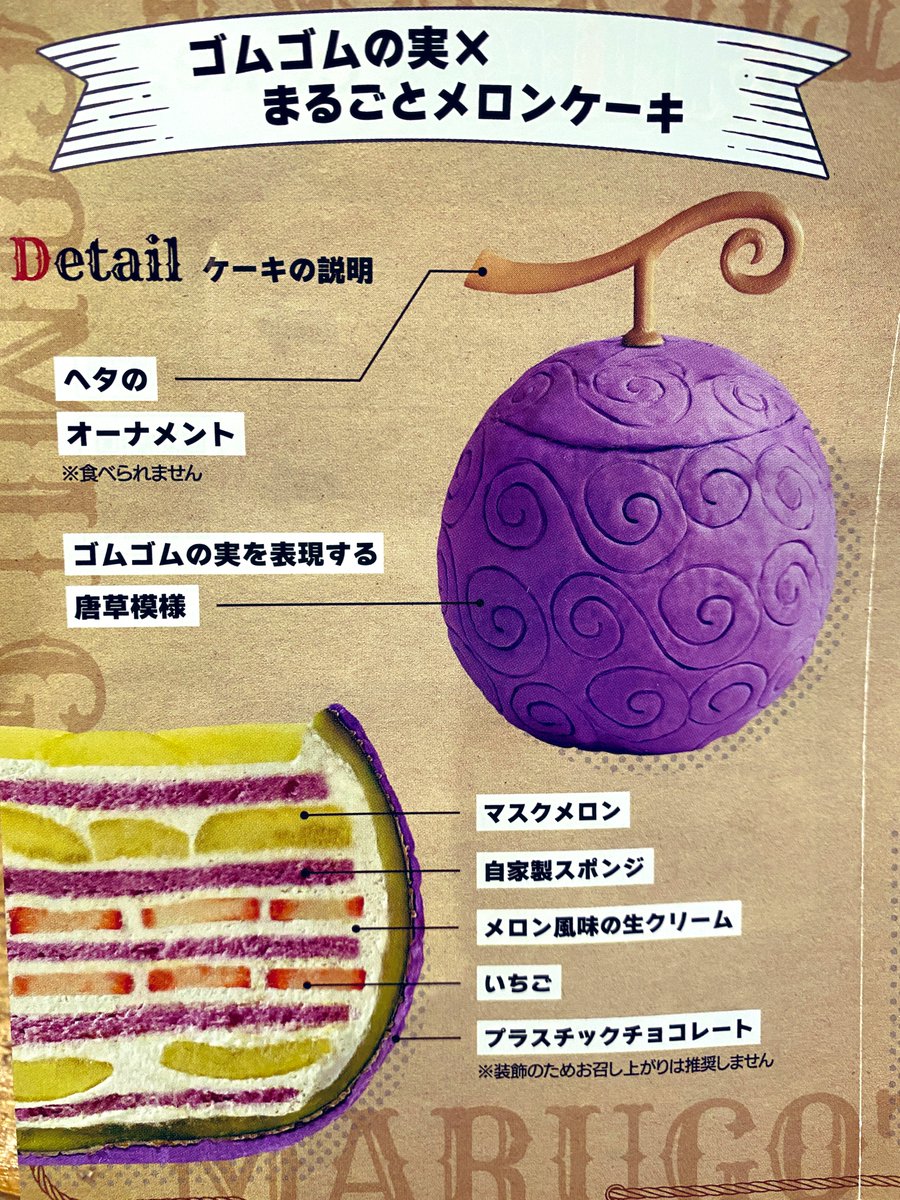 ゴムゴムの実×
まるごとメロンケーキ
Detail ケーキの説明
ヘタの
オーナメント
※食べられません
ゴムゴムの実を表現する
唐草模様
マスクメロン
自家製スポンジ
メロン風味の生クリーム
いちご
プラスチックチョコレート
※装飾のためお召し上がりは推奨しません
MARUGO